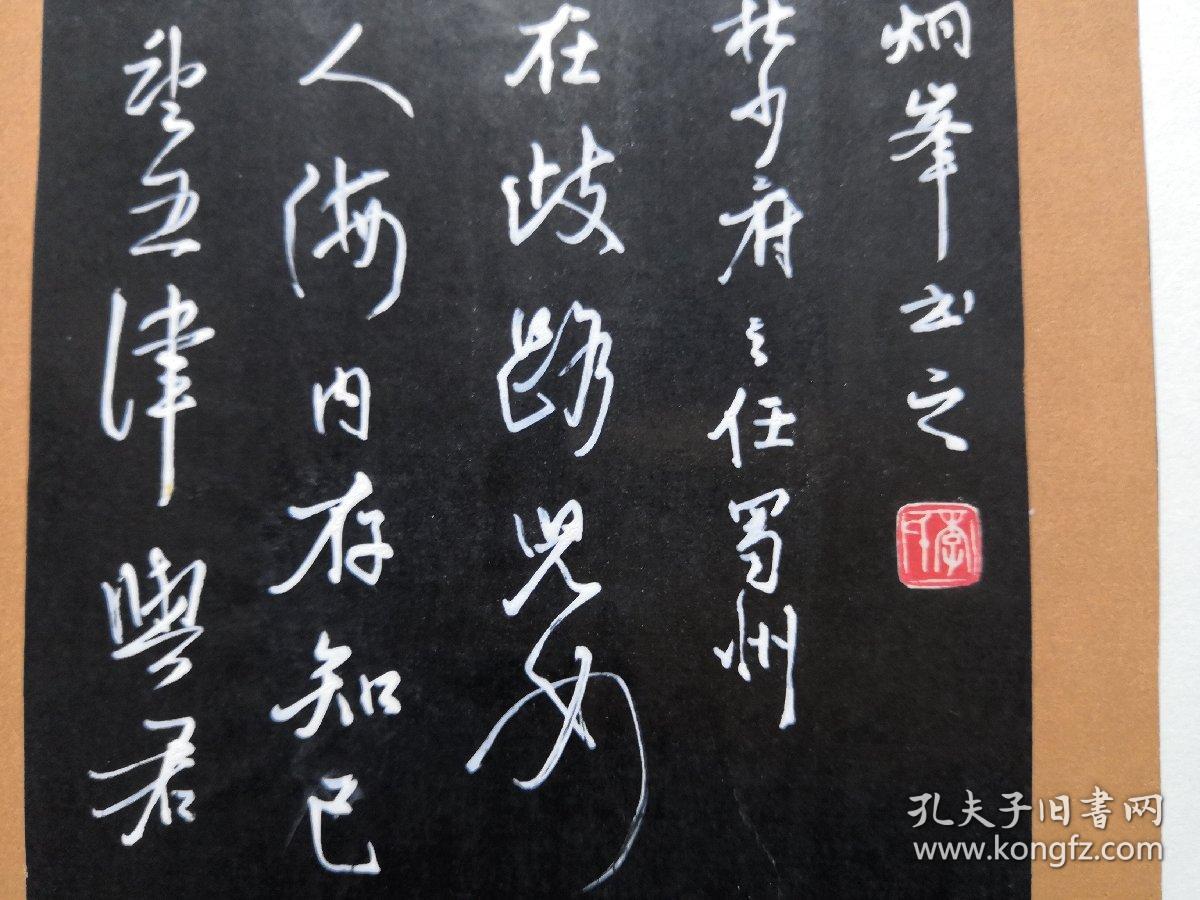 望五津與君
人海内存知己
在歧路兒女
杜少府之任蜀州
炯峯书之
孔夫子旧书网
www.kongfz.com